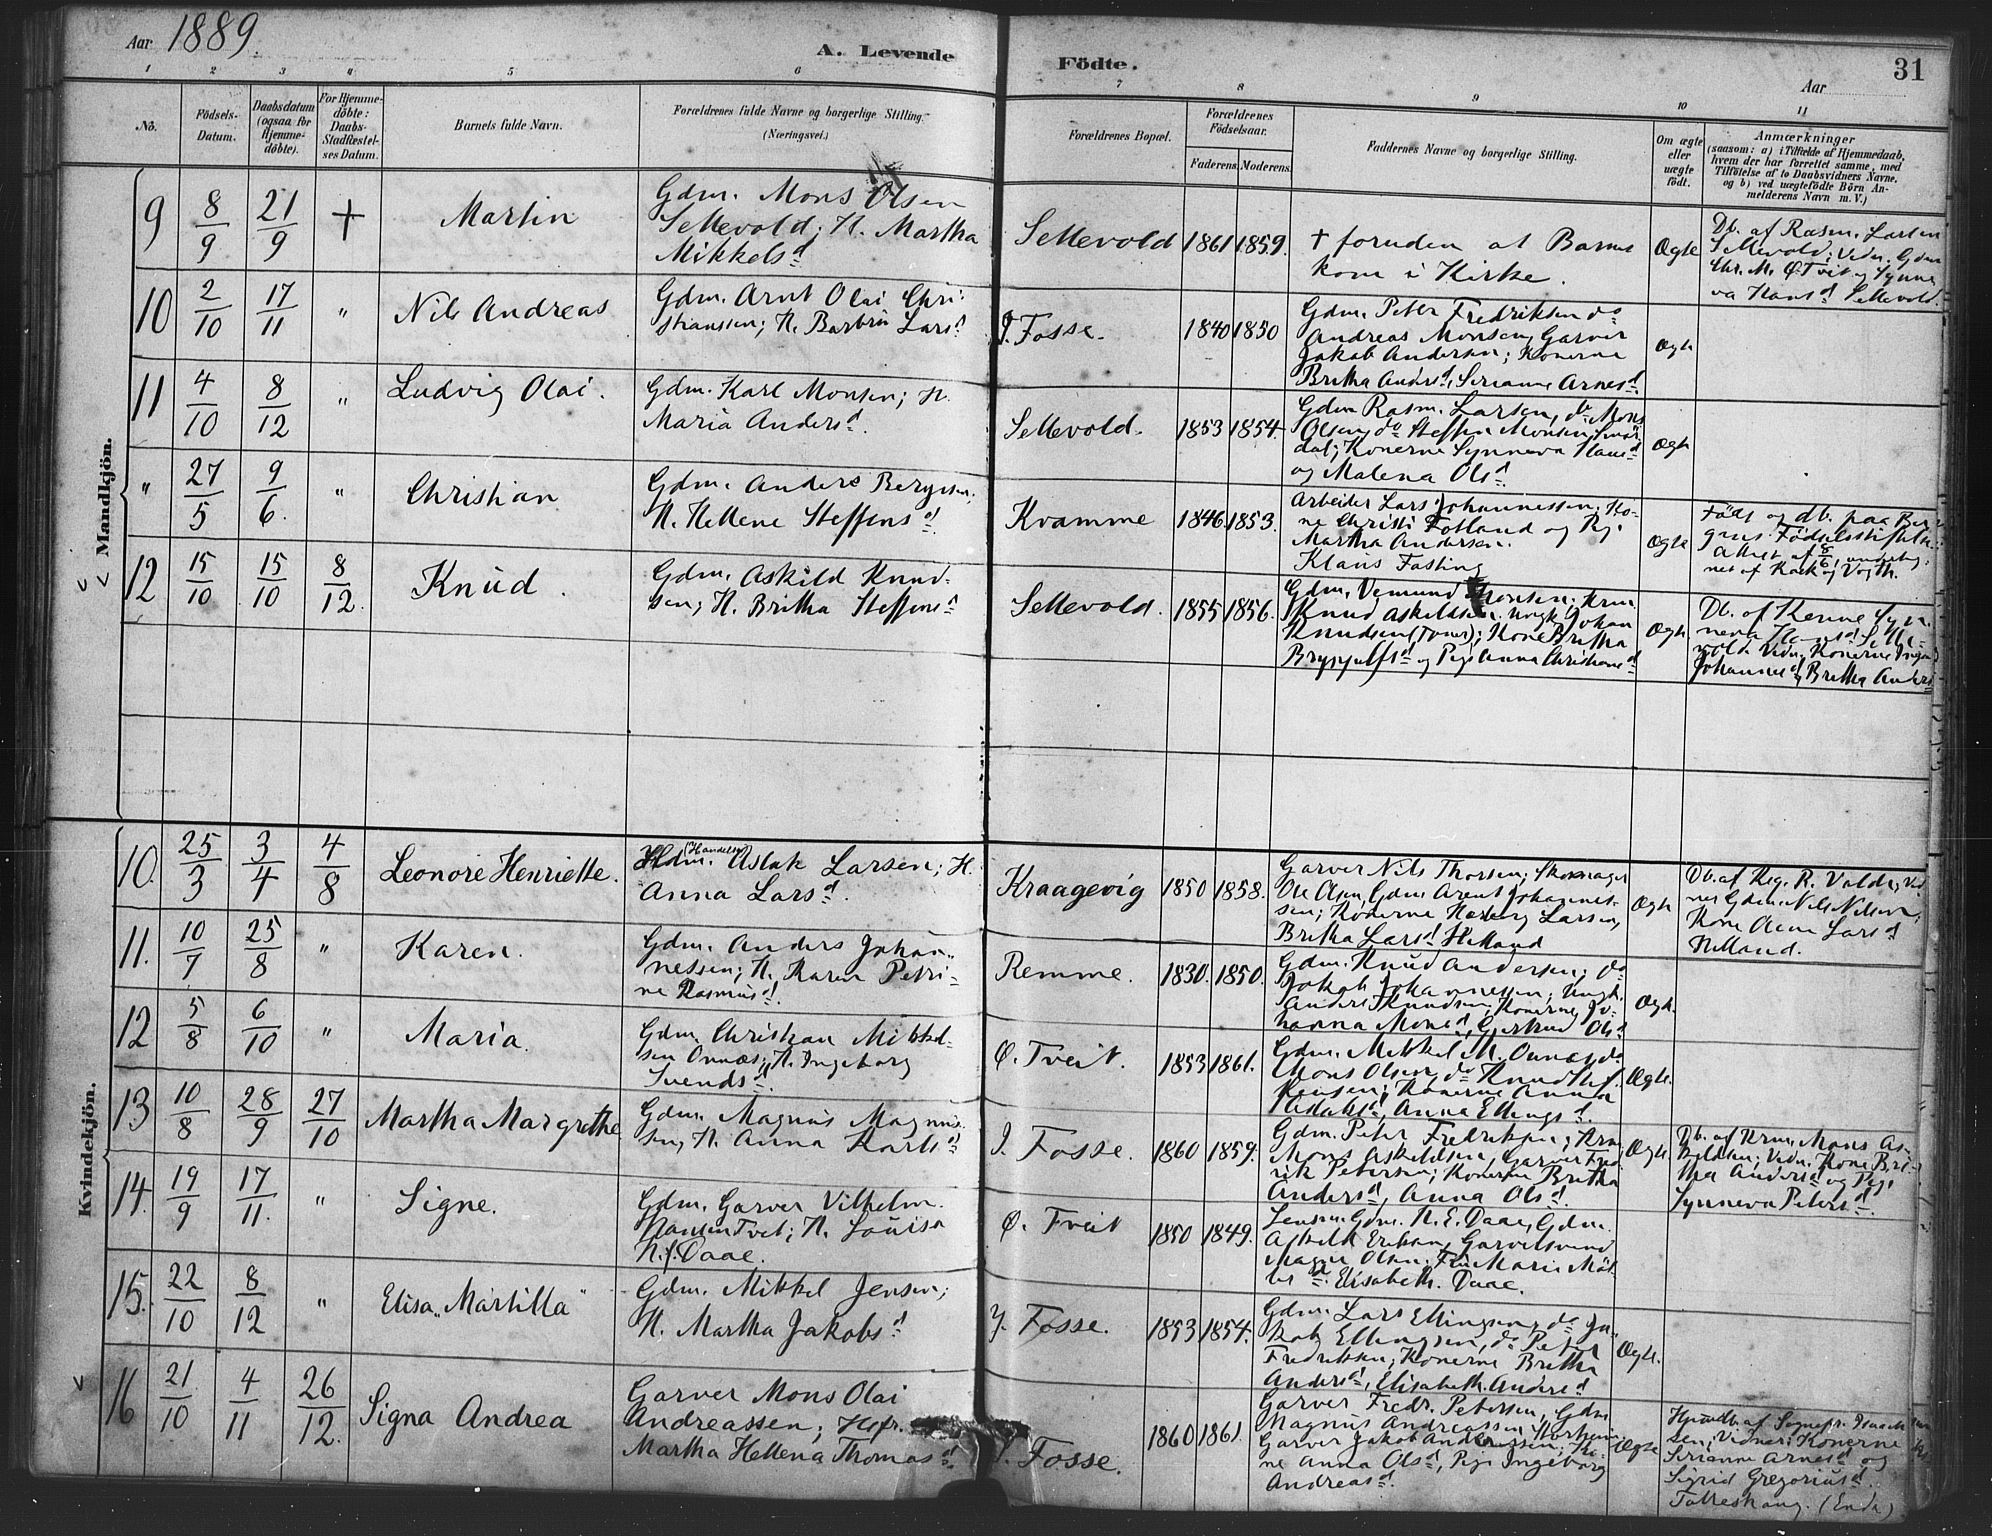 Aar 1889.
A. Levende
Födte.
Aar
31
1 2 3 4 5 6 7 8 9 10 11
No.
Födsels-
Datum.
Daabsdatum
(ogsaa for
Hjemme-
döbte).
For Hjemme-
döbte:
Daabs-
Stadfæstel-
ses Datum.
Barnets fulde Navn.
Forældrenes fulde Navne og borgerlige Stilling.
(Næringsvei.)
Forældrenes Bopæl.
Forældrenes
Födselsaar.
Faderens. Moderens.
Faddernes Navne og borgerlige Stilling.
Om ægte
eller
uægte
födt.
Anmærkninger
(saasom: a) i Tilfælde af Hjemmedaab,
hvem der har forrettet samme, med
Tilföielse af to Daabsvidners Navne,
og b) ved uægtefödte Börn An-
melderens Navn m. V.)
Mandkjön.
9
8/9
21/9
†
Martin
Gdm. Mons Olsen
Sellevold; H. Martha
Mikkelsd
Sellevold
1861
1859.
† foruden at Barnet
kom i Kirke.
Ægte
Db. af Rasm. Larsen
Sellevold; Vidn. Gdm
Chr. M. Ø. Tveit og Synne
va Hansd Sellevold.
10
2/10
17/11
"
Nils Andreas
Gdm. Arnt Olai Chri-
stianssen; H. Barbro Larsd
Y. Fosse.
1840
1850
Gdm. Peter Fredriksen do
Andreas Monsen, Garver
Jakob Andersen; Konerne
Britha Andersd, Serianne Arnesd.
Ægte
11
4/10
8/12
"
Ludvig Olai.
Gdm. Karl Monsen; H.
Maria Andersd.
Sellevold.
1853
1854.
Gdm Rasm. Larsen, do Mons
Olsen, do Steffen Monsen
dal; Konerne Synneva Hansd
og Malena Olsd.
Ægte
"
27/5
9/6.
"
Christian
Gdm. Anders Bergesen
H. Hellene Steffensd
Kvamme
1846.
1853.
Arbeider Lars Johannessen; Ko-
ne Christi Fotland og Pig.
Martha Andersen.
Klaus Fasting
Ægte
Født og db. paa Ber-
gens Fødselsstiftelse
12
15/10
15/10
8/12.
Knud.
Gdm. Askild Knud-
sen; H. Britha Steffensd
Sellevold.
1855
1856.
Gdm. Vemund Monsen; Krm
Knud Askildsen, Ungk. Johan
Knudsen (Toner); Kone Britha
Brynjulfsd og Pige Anna Christiansd
Ægte.
Db. af Konne Syn-
neva Hansd Selle-
vold. Vidn. Konerne
Johannesd, Britha Anders
Kvindekjön.
10.
25/3
3/4
4/8
Leonore Henriette.
(Handelsm)
Aslak Larsen; H.
Anna Larsd.
Kraagevig
1850
1858.
Garver Nils Thorsen; Skomager
Ole Olsen, Gdm Arent Johannes-
sen; Konerne Larsen,
Britha Larsd Helland
Ægte
Db. af
nes Gdm. Nils Nilsen,
Kone Anne Larsd
Helland.
11.
10/7
25/8
"
Karen.
Gdm. Anders Johan-
nessen; H. Karen Petri-
ne Rasmusd.
Remme.
1830.
1850.
Gdm. Knud Andersen; do
Jakob Johannessen; Ungk.
Anders Knudsen; Konerne Jo-
hanna Monsd, Gjertrud Olsd
Ægte.
12
5/8
6/10
"
Maria.
Gdm. Christian Mikkel-
sen Onnæs; H. Ingeborg
Svendsd.
Ø. Tveit.
1853
1861.
Gdm. Mikkel M. Onnæs, do
Mons Olsen, do Knud Stef-
fensen; Konerne Anna
Anna Ellingsd.
Ægte.
13
10/8
28/9
27/10
Martha Margrethe
Gdm. Magnus Magnus-
sen; H. Anna Karlsd
Y. Fosse.
1860
1859.
Gdm. Peter Fredriksen; Krm.
Mons Askeldsen, Garver Fred-
rik Petersen; Konerne Britha
Andersd, Anna Olsd.
Ægte.
Db. af Krm. Mons As-
keldsen; Vidn. Kone Bri-
tha Andersd og Pige
Synneva Petersd.
14.
19/9
17/11.
"
Signe.
Gdm. Garver Vilhelm
Hansen Tvet; H. Louisa
N. f. Daae.
Ø. Tveit
1850
1849.
Lensm. Gdm. N. E. Daae, Gdm.
Askeld Eriksen, Garversvend
Magne Olsen; Frk Marie Møl-
Elisabeth Daae.
15.
22/10
8/12
"
Elisa "Martilla"
Gdm. Mikkel Jensen;
H. Martha Jakobsd
Y. Fosse.
1853
1854.
Gdm. Lars Ellingsen, do Ja-
kob Ellingsen, do Peter
Fredriksen; Konerne Britha
Andersd, Elisabeth Andersd
Ægte.
16
21/10
4/11
26/12.
Signa Andrea
Garver Mons Olai
Andreassen;
Martha Hellena Thomasd.
Y. Fosse.
1860
1861.
Garver Fredr. Petersen, Gdm
Magnus Andreassen
Garver Jakob Andreassen; Ko-
ne Anna Olsd, Pige Ingeborg
Andreasd.
Ægte
Hjemdb. af Sognepr. Isaach
sen; Vidner: Konerne
Serianne Arnesd og
Sigrid Gregoriusd